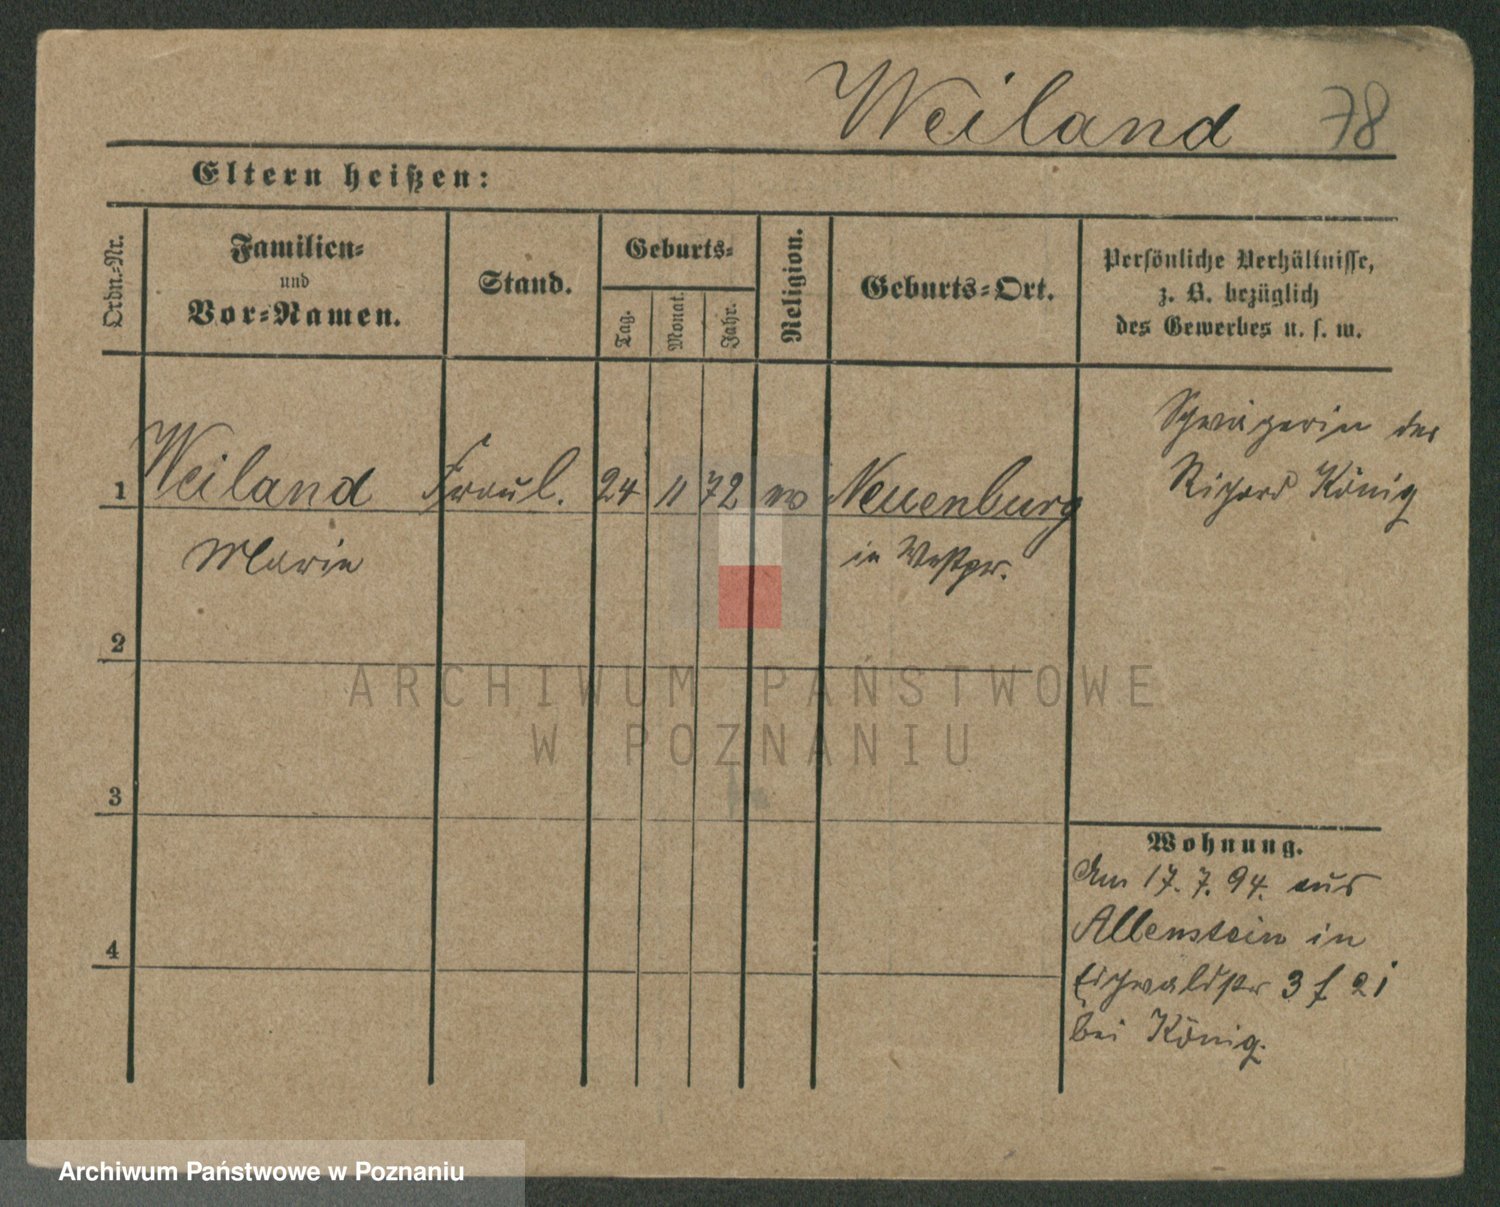 Weiland 78
Eltern heißen:
Ordn.-Nr.
Familien-
und
Vor-Namen.
Stand.
Geburts-
Tag.
Monat.
Jahr.
Religion.
Geburts-Ort.
Persönliche Verhältnisse,
z. B. bezüglich
des Gewerbes u. s. w.
Schwägerin des
Richard König
1 Weiland Fräul. 24 11 72 ev Neuenburg
Marie in Westpr.
2
3
4
Wohnung.
Am 17. 7. 94. aus
Allenstein in
Eichwaldstr 3 f 21
bei König.
ARCHIWUM PAŃSTWOWE
W POZNANIU
Archiwum Państwowe w Poznaniu